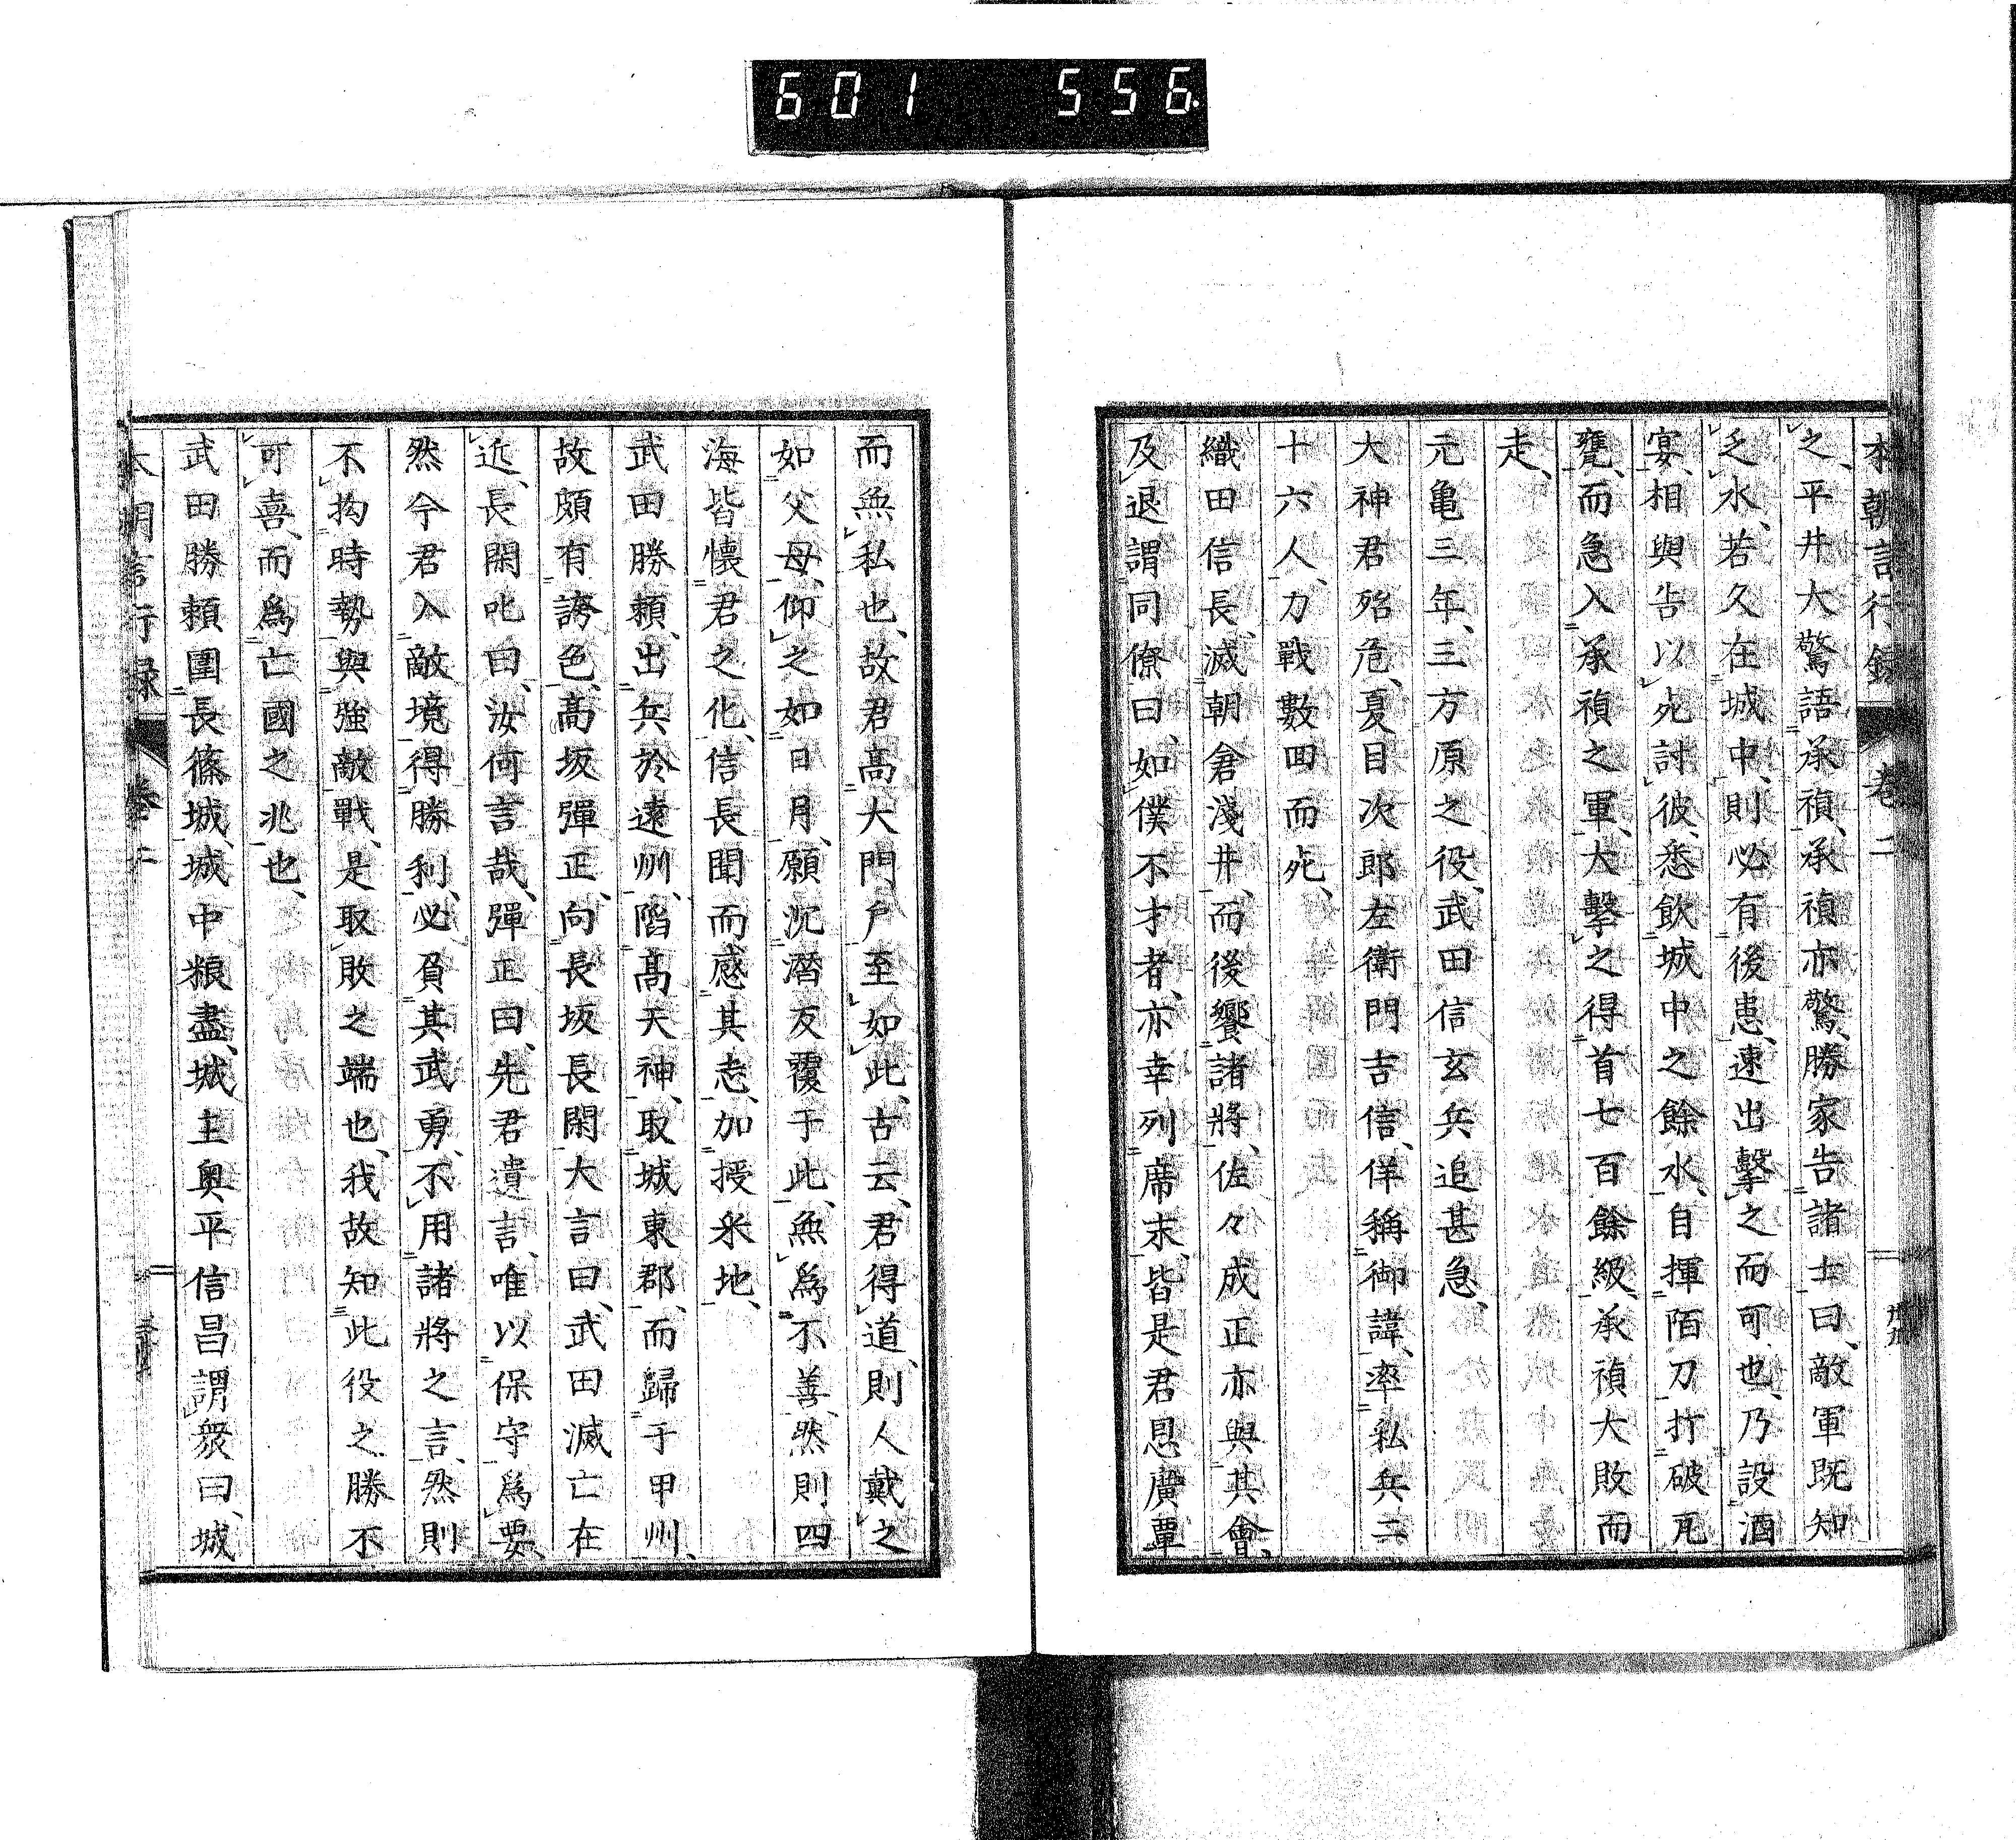 601 556
本朝言行録 卷二
之、平井大驚語承禎、承禎亦驚、勝家告諸士曰、敵軍既知
乏水、若久在城中、則必有後患、速出擊之而可也、乃設酒
宴、相與告以死討彼、悉飲城中之餘水、自揮陌刀打破瓦
甕、而急入承禎之軍、大擊之得首七百餘級、承禎大敗而
走、
元亀三年、三方原之役、武田信玄兵追甚急、
大神君殆危、夏目次郎左衛門吉信、佯稱御諱、率私兵二
十六人、力戰數回而死、
織田信長、滅朝倉淺井、而後饗諸將、佐々成正亦與其會、
及退謂同僚曰、如僕不才者、亦幸列席末、皆是君恩廣覃
而無私也、故君高大門戶至如此、古云、君得道、則人戴之
如父母、仰之如日月、願沉潛反覆于此、無爲不善、然則四
海皆懷君之化、信長聞而感其志、加授釆地、
武田勝頼、出兵於遠州、陷高天神、取城東郡、而歸于甲州、
故頗有誇色、高坂彈正、向長坂長閑大言曰、武田滅亡在
近、長閑叱曰、汝何言哉、彈正曰、先君遺言、唯以保守爲要、
然今君入敵境得勝利、必負其武勇、不用諸將之言、然則
不拘時勢與強敵戰、是取敗之端也、我故知此役之勝不
可喜、而爲亡國之兆也、
武田勝頼圍長篠城、城中粮盡、城主奥平信昌謂衆曰、城
本朝言行録 卷二